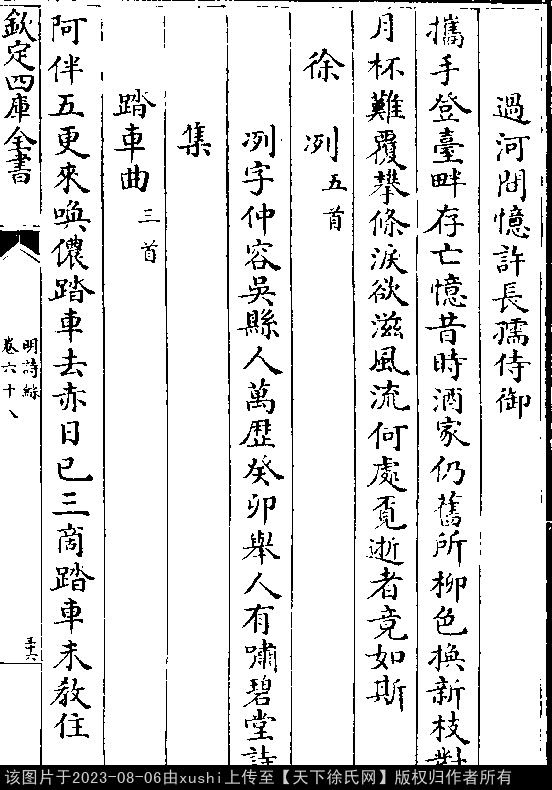 過河間憶許長孺侍御
攜手登臺畔存亡憶昔時酒家仍舊所柳色換新枝對
月杯難覆攀條淚欲滋風流何處覓逝者竟如斯
徐冽五首
冽字仲容吳縣人萬歴癸卯舉人有嘯碧堂詩
集
踏車曲三首
阿伴五更來喚儂踏車去赤日已三商踏車未教住
欽定四庫全書
明詩綜
卷六十八
三十六
该图片于2023-08-06由xushi上传至【天下徐氏网】版权归作者所有